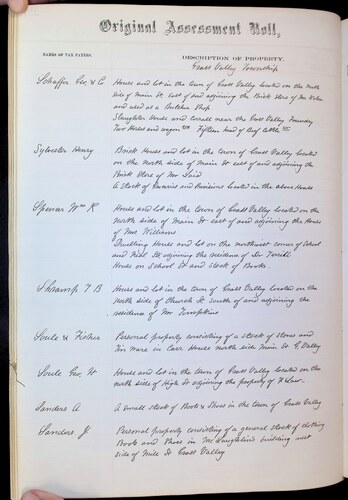 Original Assessment Roll,
NAMES OF TAX PAYERS.
DESCRIPTION OF PROPERTY.
Grass Valley Township
Schaffer Geo. & C
House and lot in the town of Grass Valley located on the North
side of Main St. East of and adjoining the Brick Store of Mr
and used as a Butcher Shop
Slaughter House and corrall near the Grass Valley Foundry
Two Horses and wagon Fifteen head of Beef Cattle
Sylvester Henry
Brick House and lot in the town of Grass Valley located
on the North side of Main St east of and adjoining the
Brick Store of Mr Loid
A Stock of and Provisions located in the above House
Spencer Wm K
House and lot in the town of Grass Valley located on the
north side of Main St east of and adjoining the House
of Mrs Williams
Dwelling House and lot on the northwest corner of School
and Neal St. adjoining the residence of Dr
House on School St and Stock of Books.
T B
House and lot in the town of Grass Valley located on the
north side of Church St South of and adjoining the
residence of Mr Tompkins
Soule & Fisher
Personal property consisting of a stock of stoves and
Tin Ware in House north side Main St G. Valley
Soule Geo. W
House and lot in the town of Grass Valley located on the
north side of High St adjoining the property of
Sanders A
A small stock of Boots & Shoes in the town of Grass Valley
Sanders J
Personal property consisting of a general stock of clothing
Boots and Shoes in McLaughlin's building west
side of Mill St Grass Valley